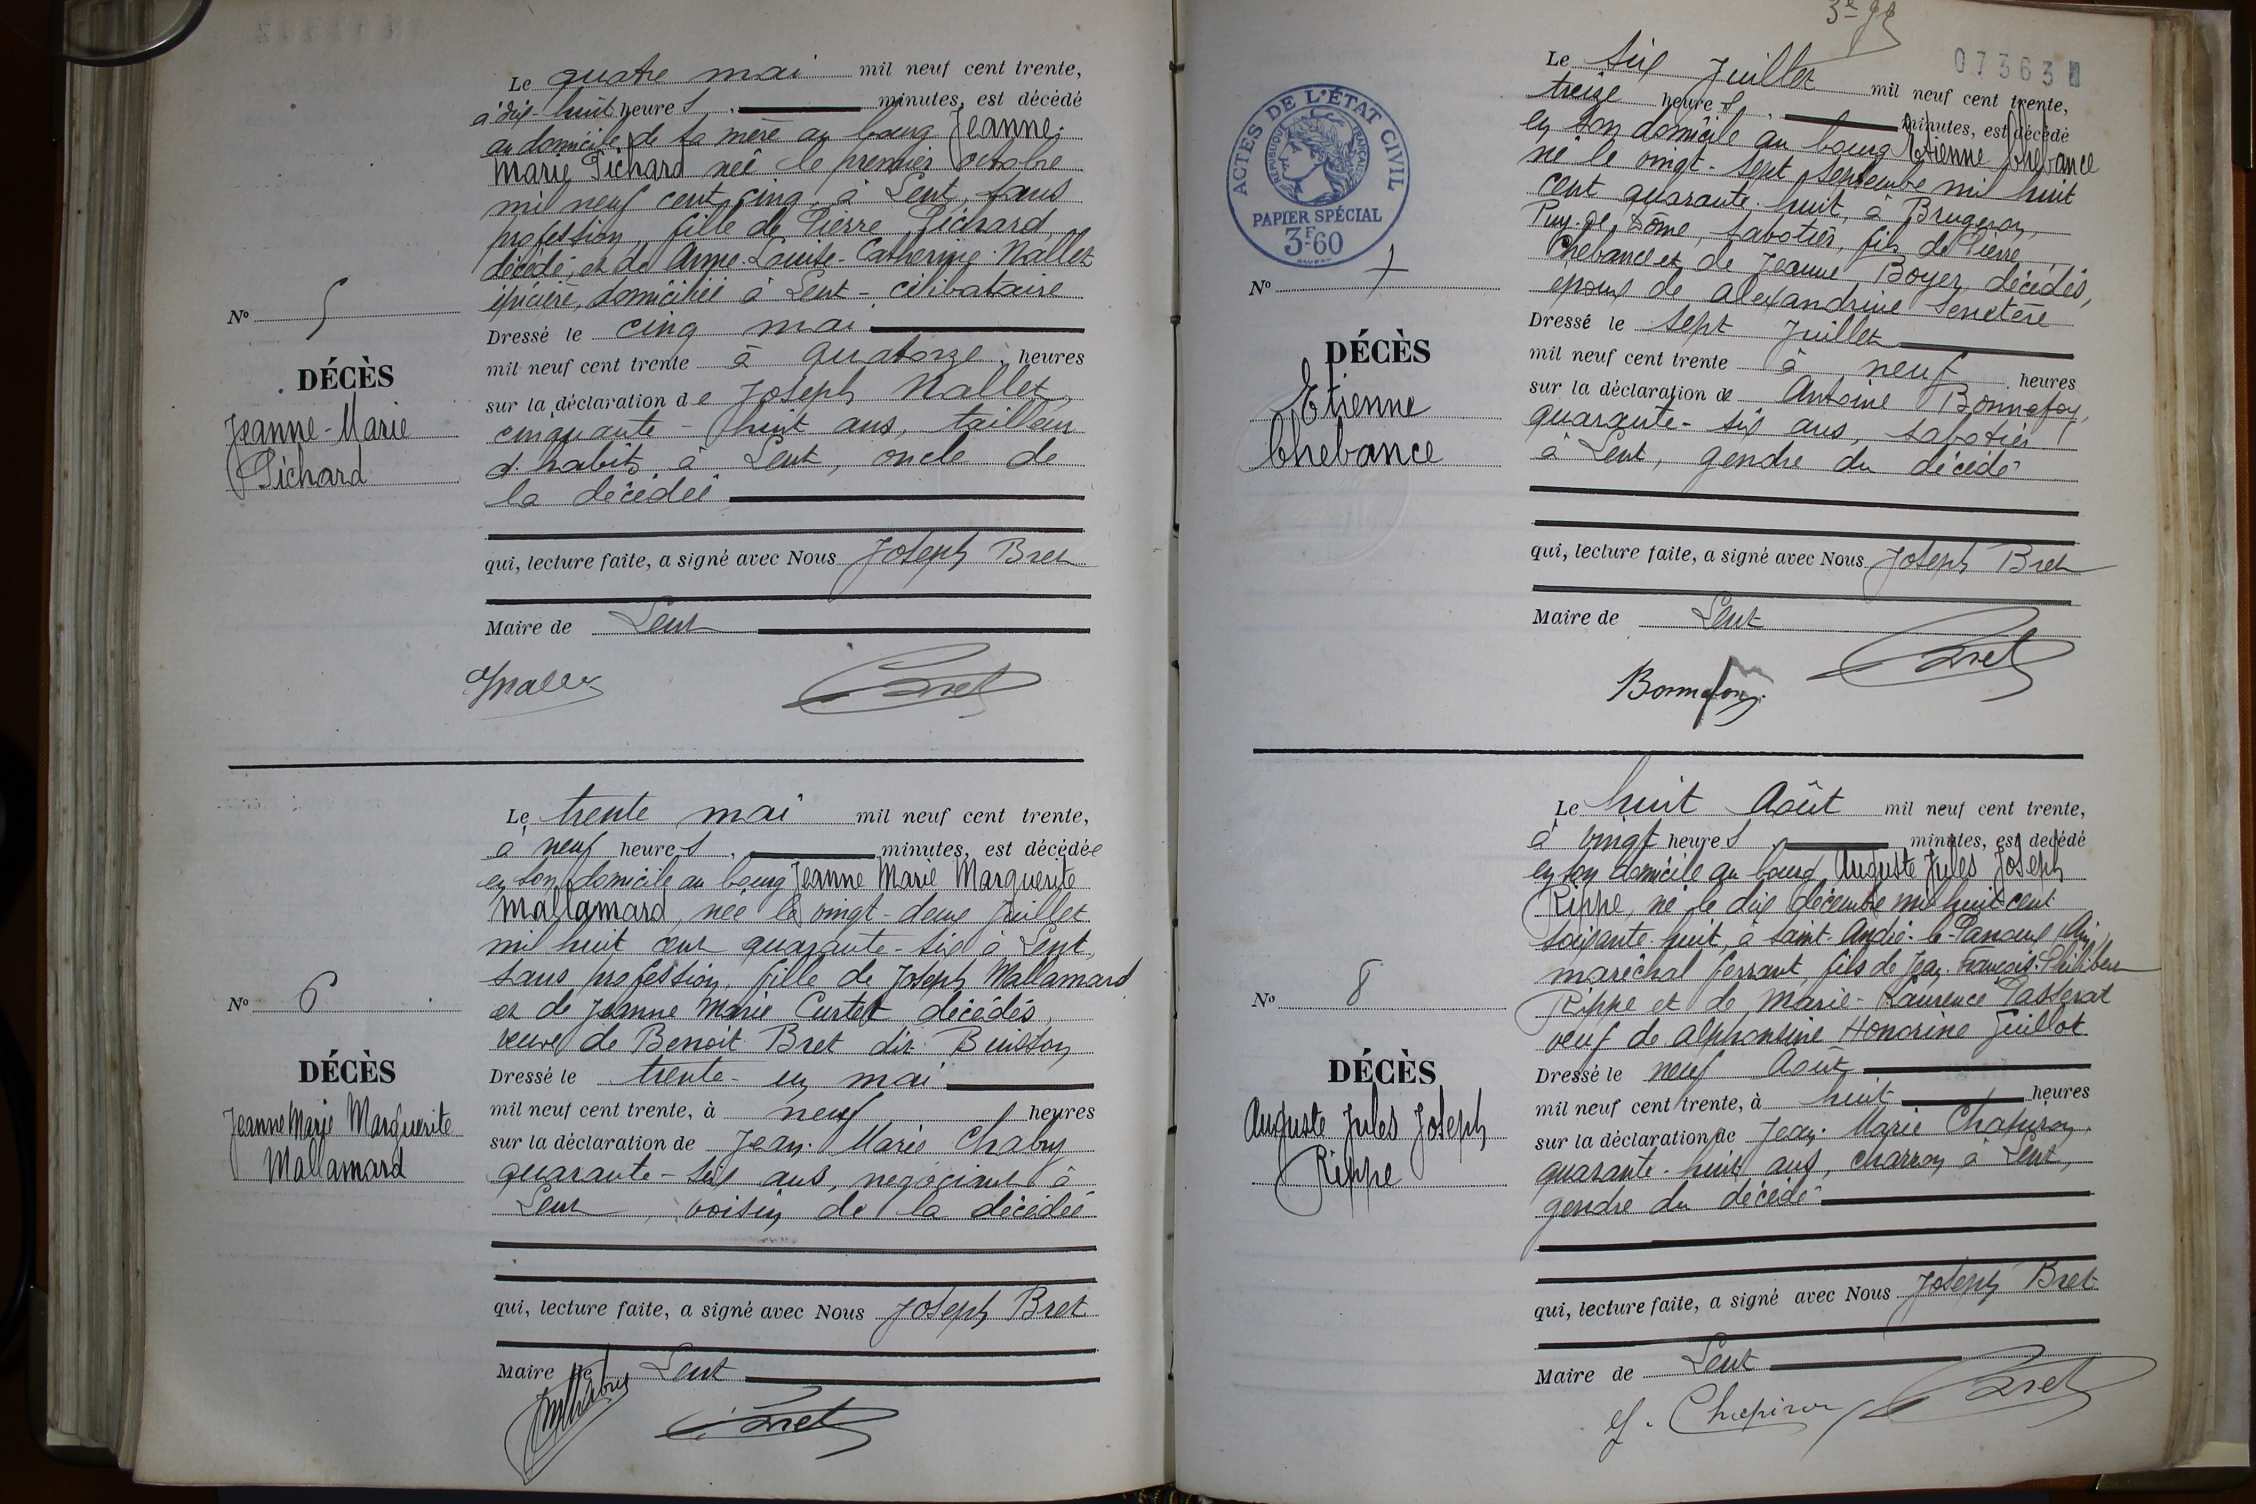 Le quatre mai mil neuf cent trente,
à dix-huit heures, minutes, est décédé
au domicile de sa mère au bourg Jeanne
Marie Pichard née le premier octobre
mil neuf cent cinq, à Lent, sans
profession, fille de Pierre Pichard
décédé, et de Anne-Louise-Catherine Nallet
épicière, domiciliée à Lent - célibataire
Nº 5
DÉCÈS
Jeanne-Marie
Pichard
Dressé le cinq mai
mil neuf cent trente à quatorze heures
sur la déclaration de Joseph Nallet
cinquante-huit ans, tailleur
d'habits à Lent, oncle de
la décédée
qui, lecture faite, a signé avec Nous Joseph Bret
Maire de Lent
Bret
Le trente mai mil neuf cent trente,
à neuf heures, minutes, est décédée
en son domicile au bourg Jeanne Marie Marguerite
Mallamard, née le vingt-deux Juillet
mil huit cent quarante-six à Lent,
sans profession, fille de Joseph Mallamard
et de Jeanne Marie Curtet décédés,
veuve de Benoît Bret dit Buisson
Nº 6
DÉCÈS
Jeanne Marie Marguerite
Mallamard
Dressé le trente-un mai
mil neuf cent trente, à neuf heures
sur la déclaration de Jean-Marie Chabry
quarante-six ans, négociant à
Lent, voisin de la décédée
qui, lecture faite, a signé avec Nous Joseph Bret
Maire de Lent
Bret
07363
ACTES DE L'ÉTAT CIVIL
RÉPUBLIQUE FRANÇAISE
PAPIER SPÉCIAL
3F60
Le six Juillet mil neuf cent trente,
treize heures, minutes, est décédé
en son domicile au bourg Etienne Chebance
né le vingt-sept septembre mil huit
cent quarante-huit, à Brugeron,
Puy-de-Dôme, sabotier, fils de Pierre
Chebance et de Jeanne Boyer, décédés,
époux de Alexandrine Senetère
Nº 7
DÉCÈS
Etienne
Chebance
Dressé le sept Juillet
mil neuf cent trente à neuf heures
sur la déclaration de Antoine Bonnefoy,
quarante-six ans, sabotier
à Lent, gendre du décédé
qui, lecture faite, a signé avec Nous Joseph Bret
Maire de Lent
Bret
Bonnefoy
Le huit Août mil neuf cent trente,
à vingt heures, minutes, est décédé
en son domicile au bourg Auguste Jules Joseph
Rippe, né le dix décembre mil huit cent
soixante-huit, à Saint-André-le-Panoux (Ain)
maréchal ferrant, fils de Jean-François-Philibert
Rippe et de Marie-Laurence Passerat
veuf de Alphonsine Honorine Juillot
Nº 8
DÉCÈS
Auguste Jules Joseph
Rippe
Dressé le neuf Août
mil neuf cent trente, à huit heures
sur la déclaration de Jean-Marie Chapiron
quarante-huit ans, charron à Lent,
gendre du décédé
qui, lecture faite, a signé avec Nous Joseph Bret
Maire de Lent
Chapiron Bret